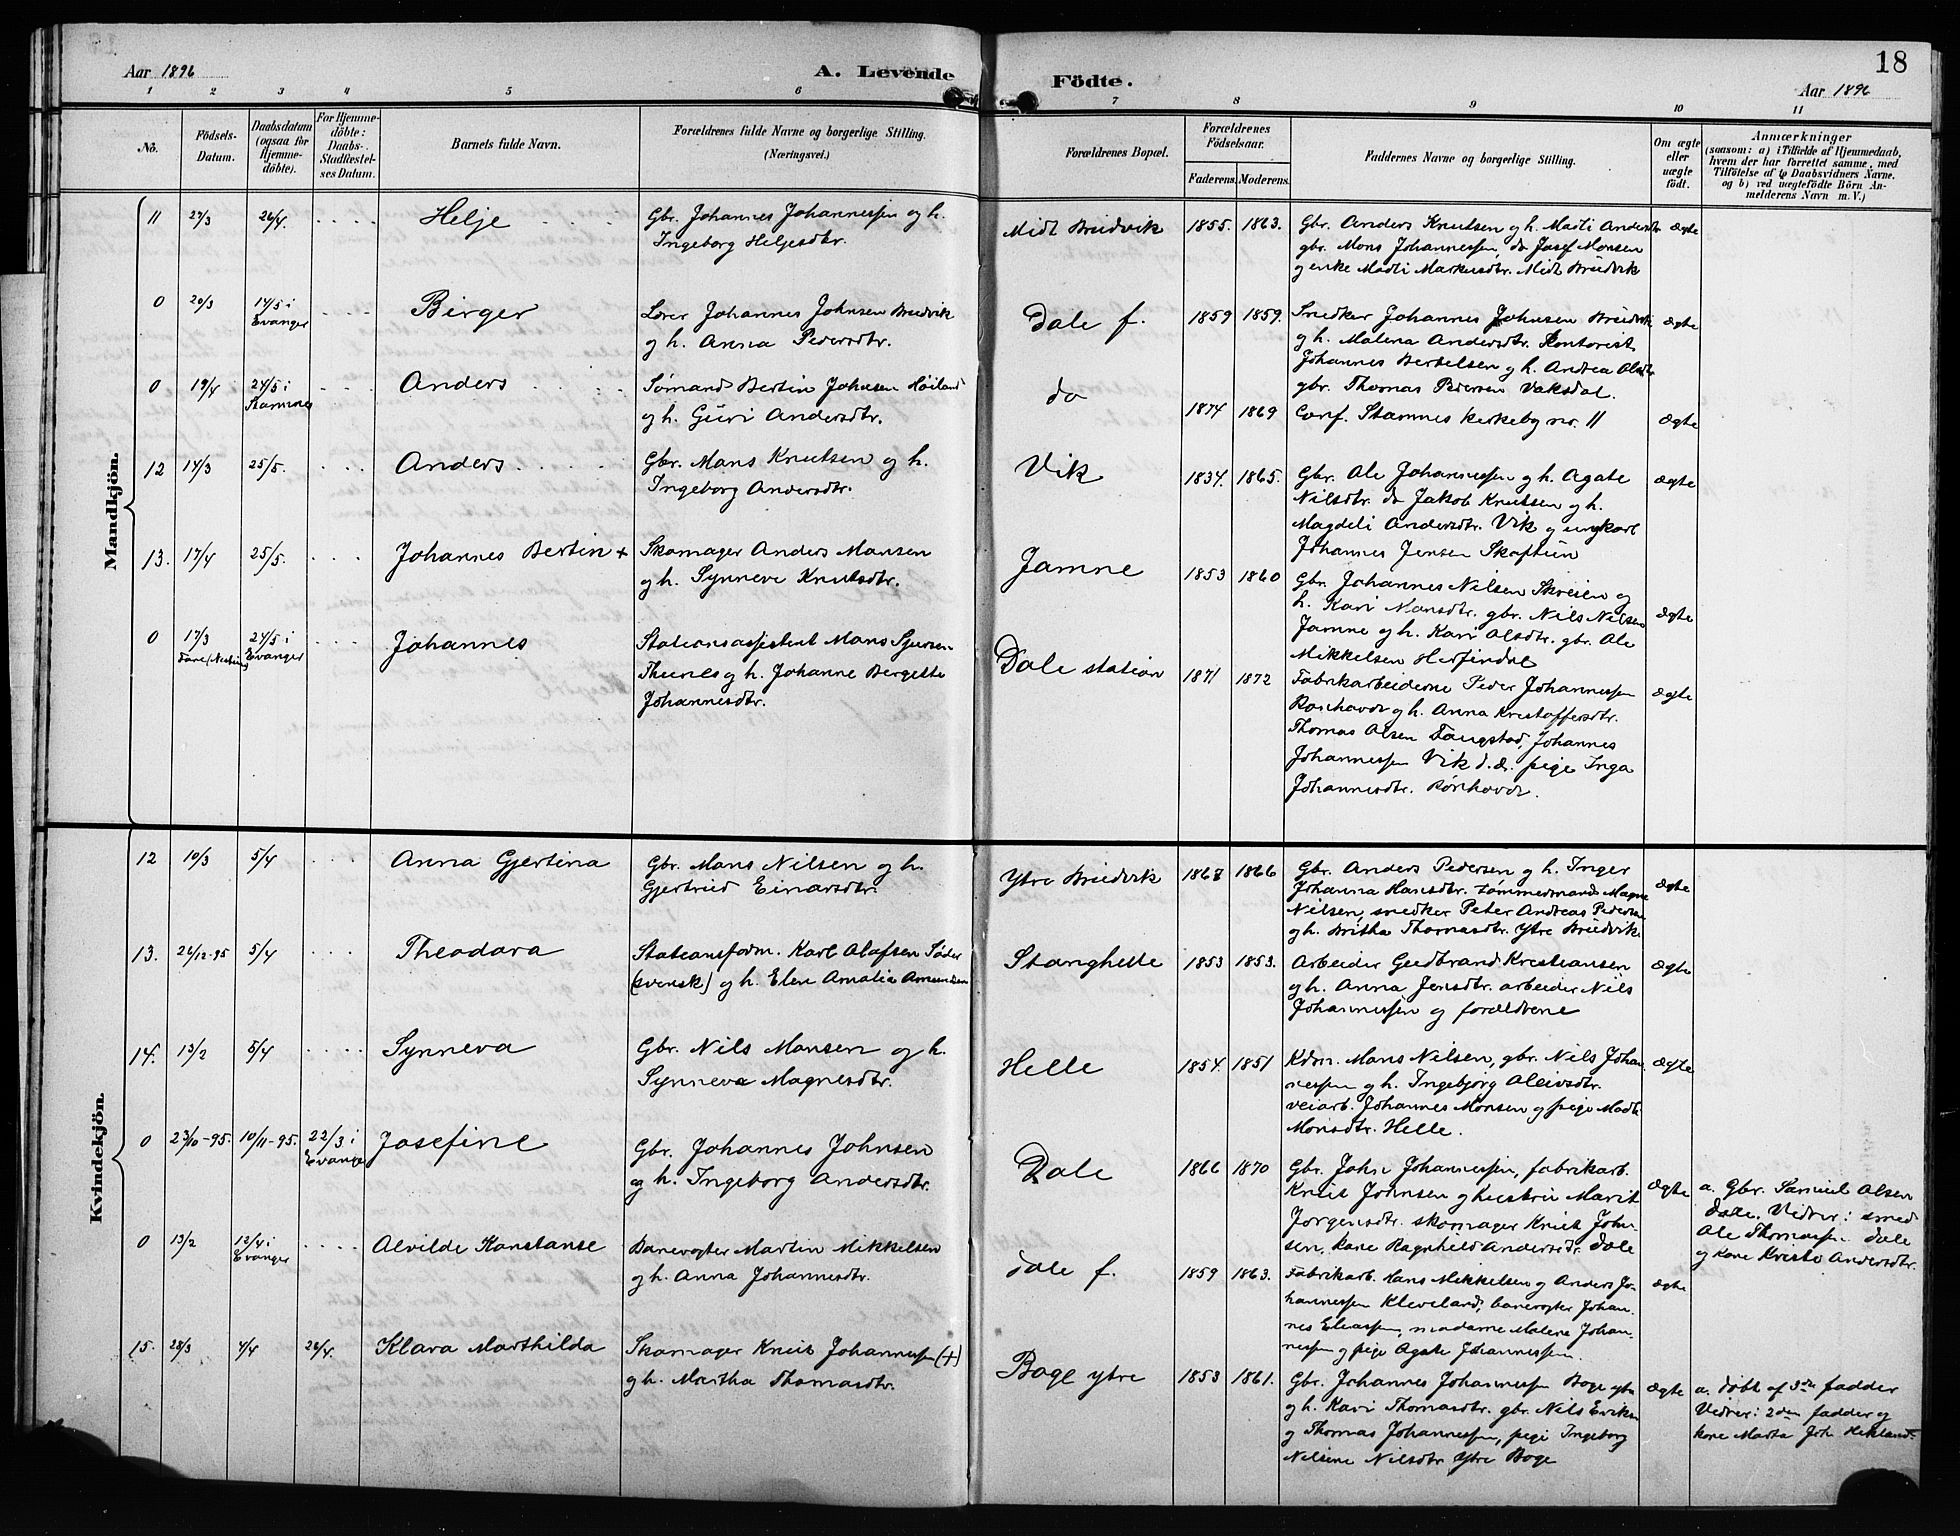 18
Aar 1896
A. Levende
Födte.
Aar 1896
1 2 3 4 5 6 7 8 9 10 11
No.
Födsels-
Datum.
Daabsdatum
(ogsaa for
Hjemme-
döbte).
For Hjemme-
döbte:
Daabs-
Stadfæstel-
ses Datum.
Barnets fulde Navn.
Forældrenes fulde Navne og borgerlige Stilling.
(Næringsvei.)
Forældrenes Bopæl.
Forældrenes
Födselsaar.
Faderens. Moderens.
Faddernes Navne og borgerlige Stilling.
Om ægte
eller
uægte
födt.
Anmærkninger
(saasom: a) i Tilfælde af Hjemmedaab,
hvem der har forrettet samme, med
Tilföielse af to Daabsvidners Navne,
og b) ved uægtefödte Börn An-
melderens Navn m. V.)
Mandkjön.
11 27/3 26/4. Helje
Gbr. Johannes Johannessen og h.
Ingeborg Heljesdtr.
Midt Bruvik 1855. 1863.
Gbr. Anders Knutsen og h. Madli Andersdtr
gbr. Mons Johannessen, do Josef Monsen
og enke Madli Markusdtr. Midt Bruvik
ægte
0 20/3 14/5 i
Evanger
Birger
Lærer Johannes Johnsen Bruvik
og h. Anna Pedersdtr.
Dale f. 1859 1859.
Snedker Johannes Johnsen Bruvik
og h. Malena Andersdtr. Kontorist
Johannes Bertelsen og h. Andrea Olsdtr
gbr. Thomas Pedersen Vaksdal.
ægte
0 19/4 24/5 i
Stamnes
Anders
Sømand Bertin Johnsen Høiland
og h. Guri Andersdtr.
do 1874 1869
Conf. Stamnes kirkeby nr. 11
ægte
12 14/3 25/5. Anders
Gbr. Mons Knutsen og h.
Ingeborg Andersdtr.
Vik 1834. 1865.
Gbr. Ole Johannessen og h. Agate
Nilsdtr. do Jakob Knutsen og h.
Magdeli Andersdtr. Vik og ungkarl
Johannes Jensen Skaftun
ægte
13. 17/4 25/5. Johannes Bertin +
Skomager Anders Monsen
og h. Synneve Knutsdtr.
Jamne 1853 1860
Gbr. Johannes Nilsen Skreien og
h. Kari Monsdtr. gbr. Nils Nilsen
Jamne og h. Kari Olsdtr. gbr. Ole
Mikkelsen Herfindal
ægte
0 17/3 24/5 i
Evanger
Johannes
Stationsassistent Mons Sjursen
Thunes og h. Johanne Bergette
Johannesdtr.
Dale station 1871 1872
Fabrikarbeiderne Peder Johannessen
og h. Anna Kristoffersdtr.
Thomas Olsen Fangstad, Johannes
Johannessen Vik d. æ. pige Inga
Johannesdtr.
ægte
Kvindekjön.
12 10/3 5/4 Anna Gjertina
Gbr. Mons Nilsen og h.
Gjertrud Einarsdtr.
Ytre Bruvik 1867 1866
Gbr. Anders Pedersen og h. Inger
Johanna Hansdtr. tømmermand Magne
Nilsen, snedker Peter Andreas Pedersen
og h. Britha Thomasdtr. Ytre Bruvik
ægte
13. 26/12-95 5/4 Theodora
Stationsform. Karl Olafsen Söder
(svensk) og h. Elen Amalia Amundsen
Stanghelle 1853 1853.
Arbeider Gudbrand Kristiansen
og h. Anna Jensdtr. arbeider Nils
Johannessen og forældrene
ægte
14. 13/2 5/4 Synneva
Gbr. Nils Monsen og h.
Synneva Magnesdtr.
Helle 1854. 1851
Kdm. Mons Nilsen, gbr. Nils Johan-
nessen og h. Ingebjörg Oleivsdtr.
veiarb. Johannes Monsen og pige Madli
Monsdtr. Helle.
ægte
0 23/10-95. 10/11-95. 22/3 i
Evanger
Josefine
Gbr. Johannes Johnsen
og h. Ingeborg Andersdtr.
Dale 1866 1870
Gbr. John Johannessen, fabrikarb.
Knut Johnsen og hustru Marit
Jorgensdtr. skomager Knut John-
sen, kone Ragnhild Andersdtr. Dale
ægte
a. Gbr. Samuel Olsen
Dale. Vidner: smed
Ole Thomassen Dale
og kone Kristi Andersdtr.
0 13/2 12/4 i
Evanger
Alvilde Konstanse
Banevogter Martin Mikkelsen
og h. Anna Johannesdtr.
Dale f. 1859 1863.
Fabrikarb. Hans Mikkelsen og Anders Jo-
hannessen Kleveland, banevogter Johan-
nes Eliassen, madame Malene Johan-
nessen og pige Agate Johannessen.
ægte
15. 28/3 4/4 26/4 Klara Marthilda
Skomager Knut Johannessen (+)
og h. Martha Thomasdtr.
Boge ytre 1853 1861.
Gbr. Johannes Johannessen Boge ytre
og h. Kari Thomasdtr. gbr. Nils Eriksen
og Thomas Johannessen, pige Ingeborg
Nilsine Nilsdtr Ytre Boge
ægte
a. døbt af 3die fadder
Vidner: 2den fadder og
kone Marta Joh. Hekland